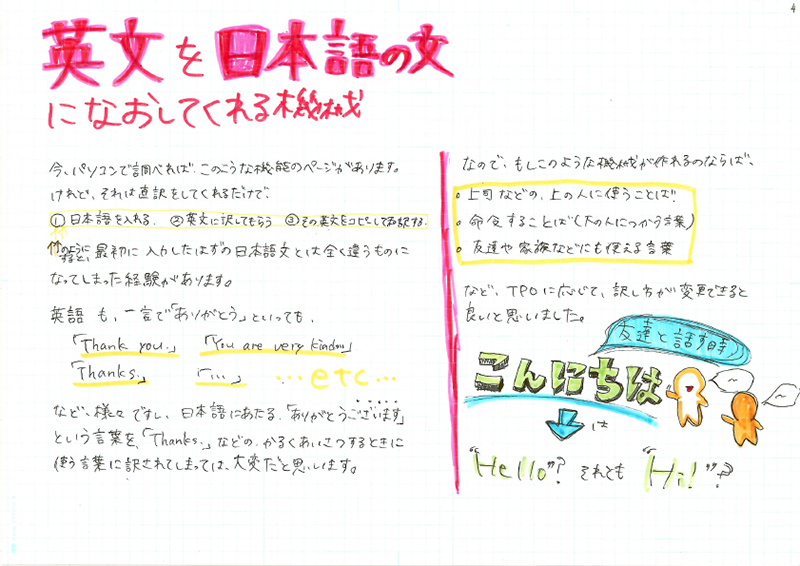 4
英文を日本語の文
になおしてくれる機械
今、パソコンで調べれば、このような機能のページがあります。
けれど、それは直訳をしてくれるだけで、
① 日本語を入れる. ②英文に訳してもらう ③その英文をコピーして再訳する.
↑のように
すると、最初に入力したはずの日本語文とは全く違うものに
なってしまった経験があります。
英語も、一言で「ありがとう」といっても、
「Thank you.」 「You are very kind....」
「Thanks.」 「....」 ...etc...
など、様々ですし、日本語にあたる、「ありがとうございます」
という言葉を、「Thanks.」などの、かるくあいさつするときに
使う言葉に訳されてしまっては、大変だと思います。
なので、もしこのような機械が作れるのならば、
・上司などの、上の人に使うことば
・命令することば(下の人につかう言葉)
・友達や家族などにも使える言葉
など、TPOに応じて、訳し方が変更できると
良いと思いました。
友達と話す時
こんにちは
↓は
"Hello"? それとも "Hi!"?